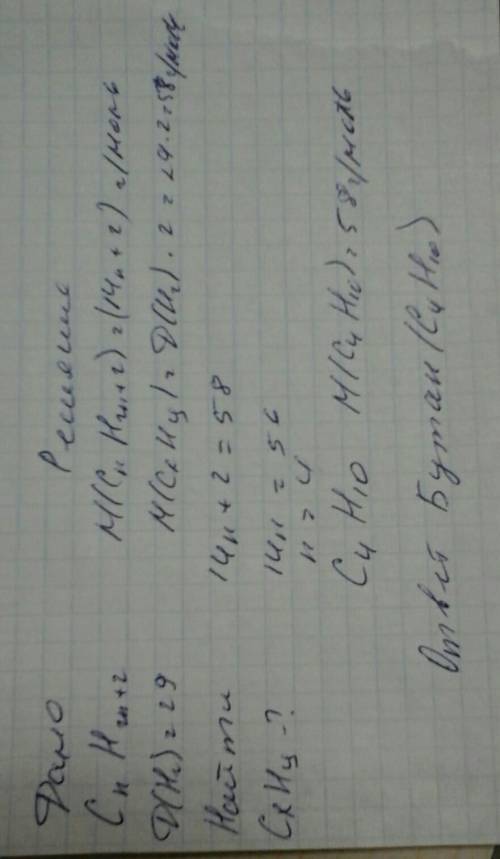 Дано
CnH2n+2
D(H2)=29
Найти
CxHy-?
Решение
M(CnH2n+2)=(14n+2) г/моль
M(CxHy)=D(H2)·2=29·2=58г/моль
14n+2=58
14n=56
n=4
C4H10 M(C4H10)=58г/моль
Ответ Бутан(C4H10)